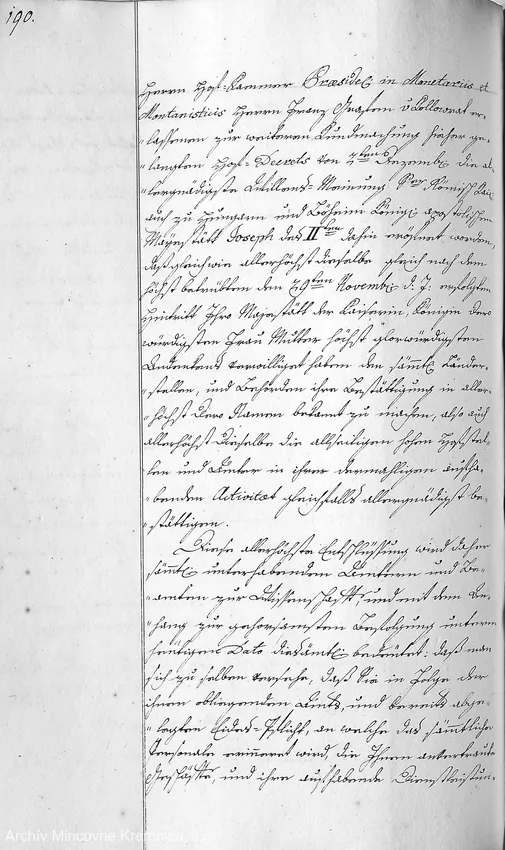 190.
Herrn Hof-Kammer Præsidei in Monetariis et
Montanisticis Herrn Franz Grafen v Kollowrat er-
-lassenen zur weiteren Kundmachung hieher ge-
-langten Hof-Decrets von Dezemb die al-
-lergnädigste Willens-Meinung Sr Römisch Kai
auch zu Hungarn und Böheim König apostolischen
Mayestätt Joseph des II ten dahin eröfnet worden,
daß gleichwie allerhöchst dieselbe gleich nach dem
höchst betrübten den 29ten Novemb d. J: erfolgten
Hintritt Ihro Mayestätt der Kaiserin, Königin dero
würdigsten Frau Mutter höchst glorwürdigsten
Andenkens verwilliget haben den sämtl Länder-
-stellen, und Behörden ihre Bestättigung in aller-
-höchst Dero Namen bekant zu machen, also auch
allerhöchst Dieselbe die allseitigen hohen Hofstel-
len und Ämter in ihrer dermahligen aufha-
-benden Activitæt gleichfalls allergnädigst be-
-stättigen.
Diese allerhöchste Entschlüssung wird daher
sämtl unterhabenden Ämtern und Be-
-amten zur Wissenschafft, und mit dem An-
-hang zur gehorsamsten Befolgung unterm
heutigen Dato diesämtl bedeutet: daß man
sich zu selben versehe, daß Sie in Folge der
ihnen obliegenden Amts, und bereits abge-
-legten Eides-Pflicht, an welche das sämtliche
Personale erinneret wird, die Ihnen anvertraute
Geschäffte, und ihre aufhabende Dienstleistun-
Archiv Mincovne Kremnica, š.